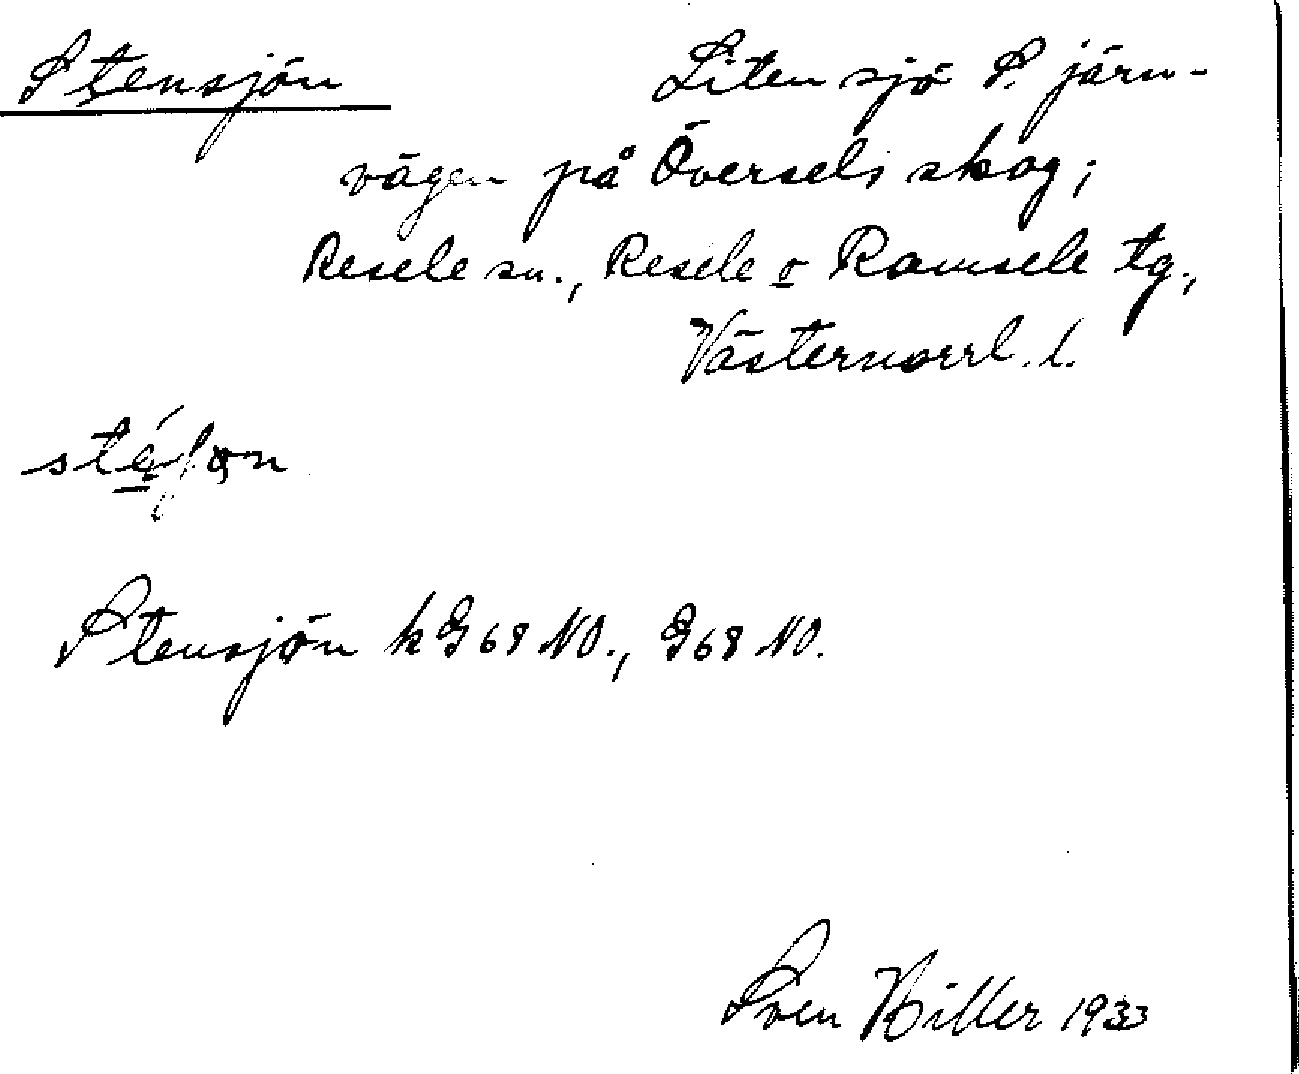 Stensjön Liten sjö S. järn-
vägen på Översels skog;
Resele sn., Resele o Ramsele tg.,
Västernorrl. l.
Stensjön k G 68 NO., G 68 NO.
Sven Hiller 1933